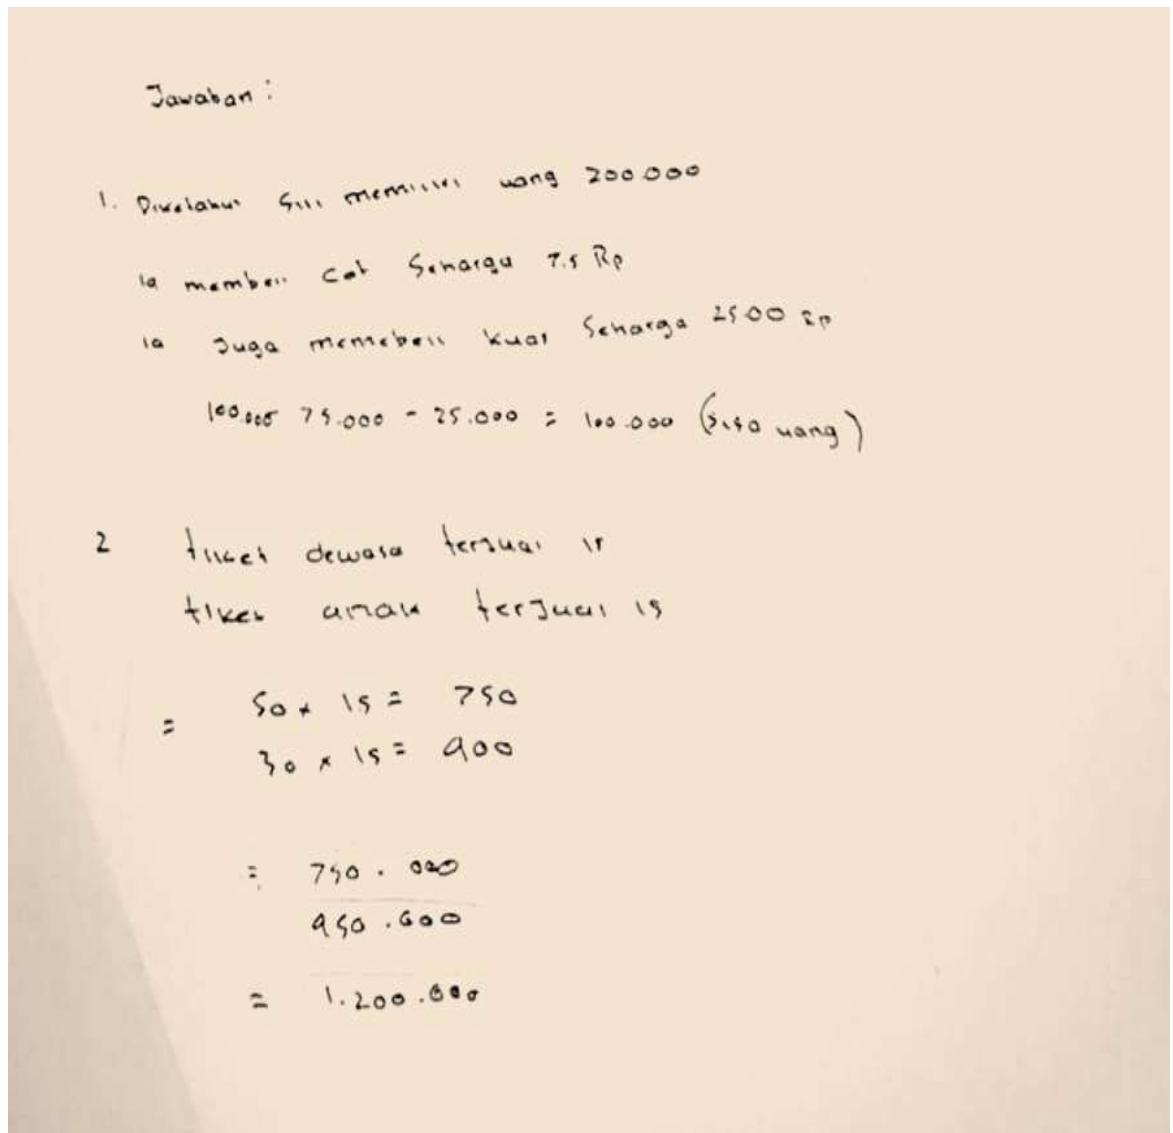 Jawaban :
1. Diketahui Siti memiliki uang 200.000
ia membeli cat Seharga 7.5 Rp
ia Juga memebeli kuas Seharga 2500 Rp
100.000 75.000 - 25.000 = 100.000 (Sisa uang)
2 tiket dewasa terjual 15
tiket anak terjual 15
= 50 x 15 = 750
30 x 15 = 900
= 750.000
950.000
= 1.200.000